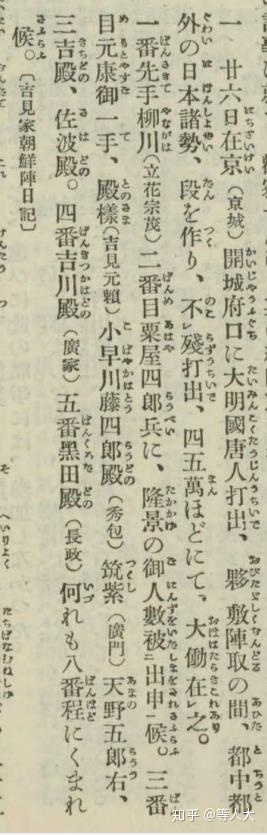 一　廿六日在京(京城)開城府口に大明國唐人打出、夥敷陣取の間、都中都
外の日本諸勢、段を作り、不レ殘打出、四五萬ほどにて、大働在レ之。
一番先手柳川(立花宗茂)二番目粟屋四郎兵に、隆景の御人數被二出申一候。三番
目元康御一手、殿樣(吉見元賴)小早川藤四郎殿(秀包)筑紫(廣門)天野五郎右、
三吉殿、佐波殿。四番吉川殿(廣家)五番黑田殿(長政)何れも八番程にくまれ
候。〔吉見家朝鮮陣日記〕
知乎 @等人大